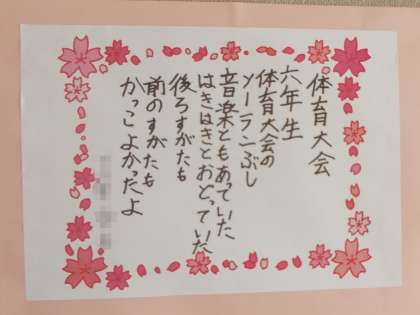 体育大会
六年生
体育大会の
ソーランぶし
音楽ともあっていた
はきはきとおどっていた
後ろすがたも
前のすがたも
かっこよかったよ